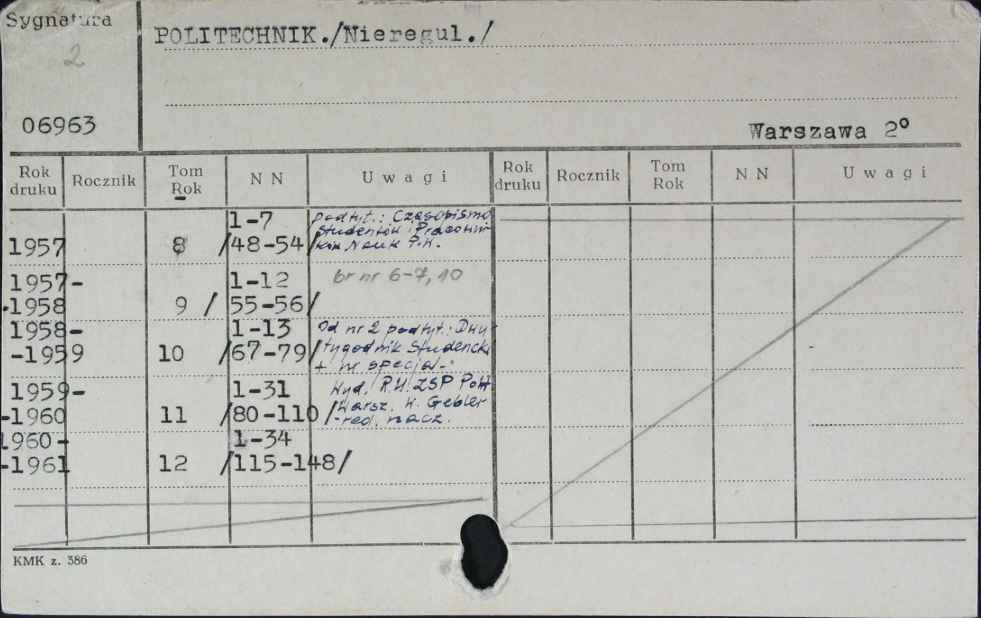 Sygnatura
2
06963
POLITECHNIK./Nieregul./
Warszawa 2°
Rok druku Rocznik Tom Rok NN Uwagi Rok druku Rocznik Tom Rok NN Uwagi
1-7 podtyt.: Czasopismo
Studentów i Pracowni-
1957 8 /48-54/ ków Nauk P.W.
1957- 1-12 br nr 6-7, 10
-1958 9 / 55-56/
1958- 1-13 Od nr 2 podtyt.: Dwu-
-1959 10 /67-79/ tygodnik Studencki
+ nr specjal-
1959- 1-31 Wyd. R.U. ZSP Polit
Warsz. H. Gebler
-1960 11 /80-110/ -red. nacz.
1960- 1-34
-1961 12 /115-148/
KMK z. 386